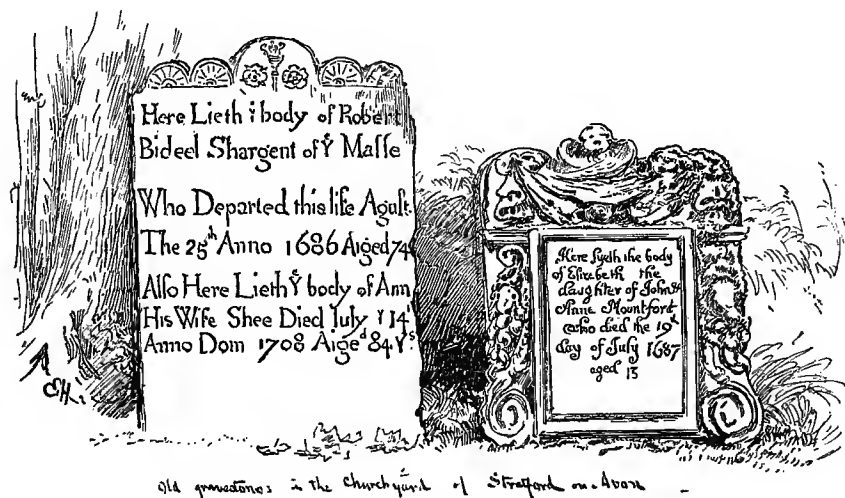 Here Lieth ẏ body of Robert
Bideel Shargent of ẏ Maſſe
Who Departed this life Aguſt.
The 25th Anno 1686 Aiged 74
Alſo Here Lieth ẏ body of Ann
His Wife Shee Died July ẏ 14
Anno Dom 1708 Aiged 84 Ys
Here lyeth the body
of Elizebeth the
daughter of John &
Anne Mountford
who died the 19th
day of July 1687
aged 13
EH
Old gravestones in the Churchyard of Stratford on Avon